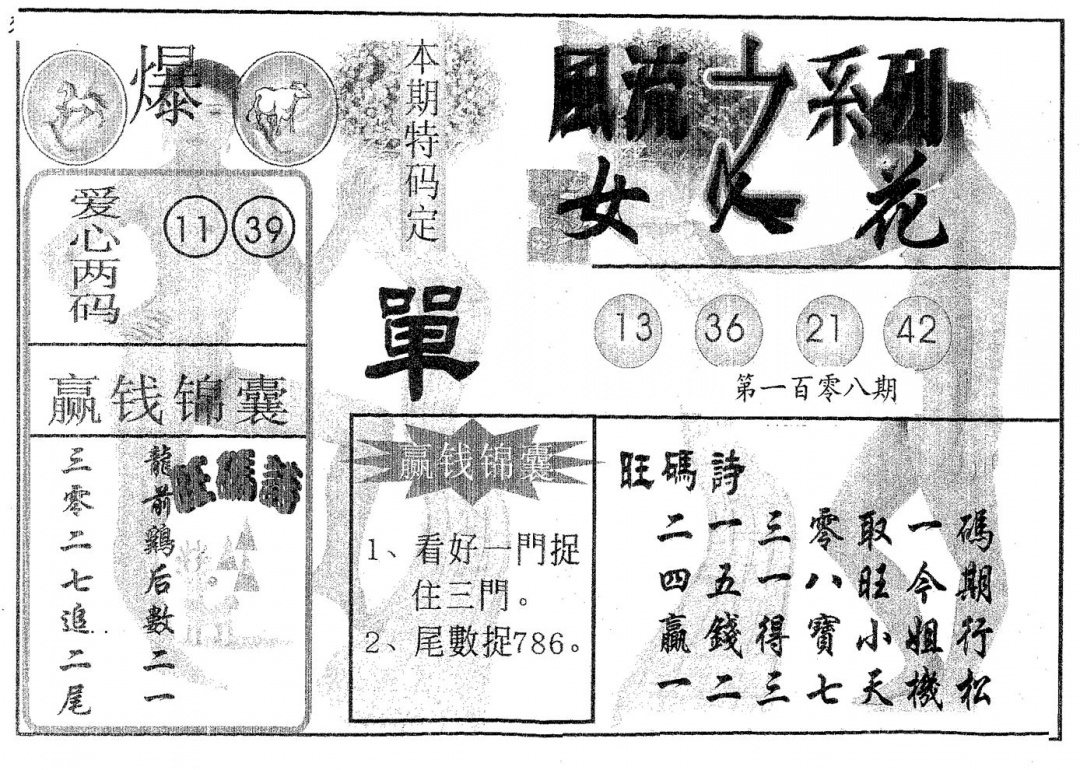 爆
本期特码定
單
風流之系列
女人花
爱心两码
11 39
13 36 21 42
第一百零八期
赢钱锦囊
旺碼詩
龍前鷄后數二一
三零二七追二尾
赢钱锦囊
1、看好一門捉
住三門。
2、尾數捉786。
旺碼詩
碼期行松
一今姐機
取旺小天
零八寶七
三一得三
一五錢二
二四贏一